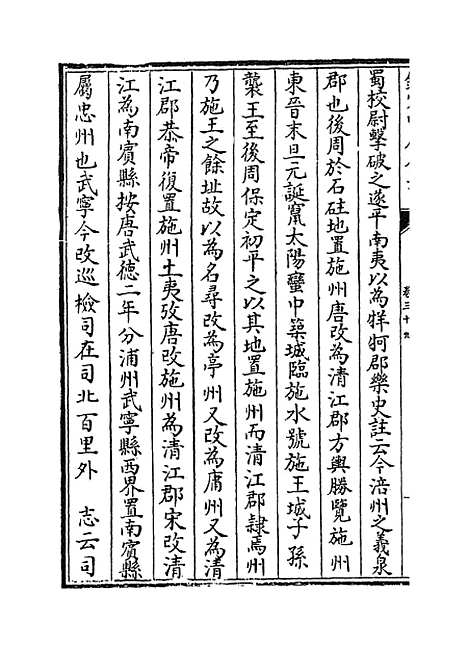 蜀校尉擊破之遂平南夷以為牂牁郡樂史註云今涪州之義泉
郡也後周於石硅地置施州唐改為清江郡方輿勝覽施州
東晉末旦元誕竄太陽蠻中築城臨施水號施王城子孫
襲王至後周保定初平之以其地置施州而清江郡隷焉州
乃施王之餘址故以為名尋改為亭州又改為庸州又為清
江郡恭帝復置施州土夷攷唐改施州為清江郡宋改清
江為南賓縣按唐武德二年分浦州武寧縣西界置南賓縣
屬忠州也武寧今改巡檢司在司北百里外　志云司